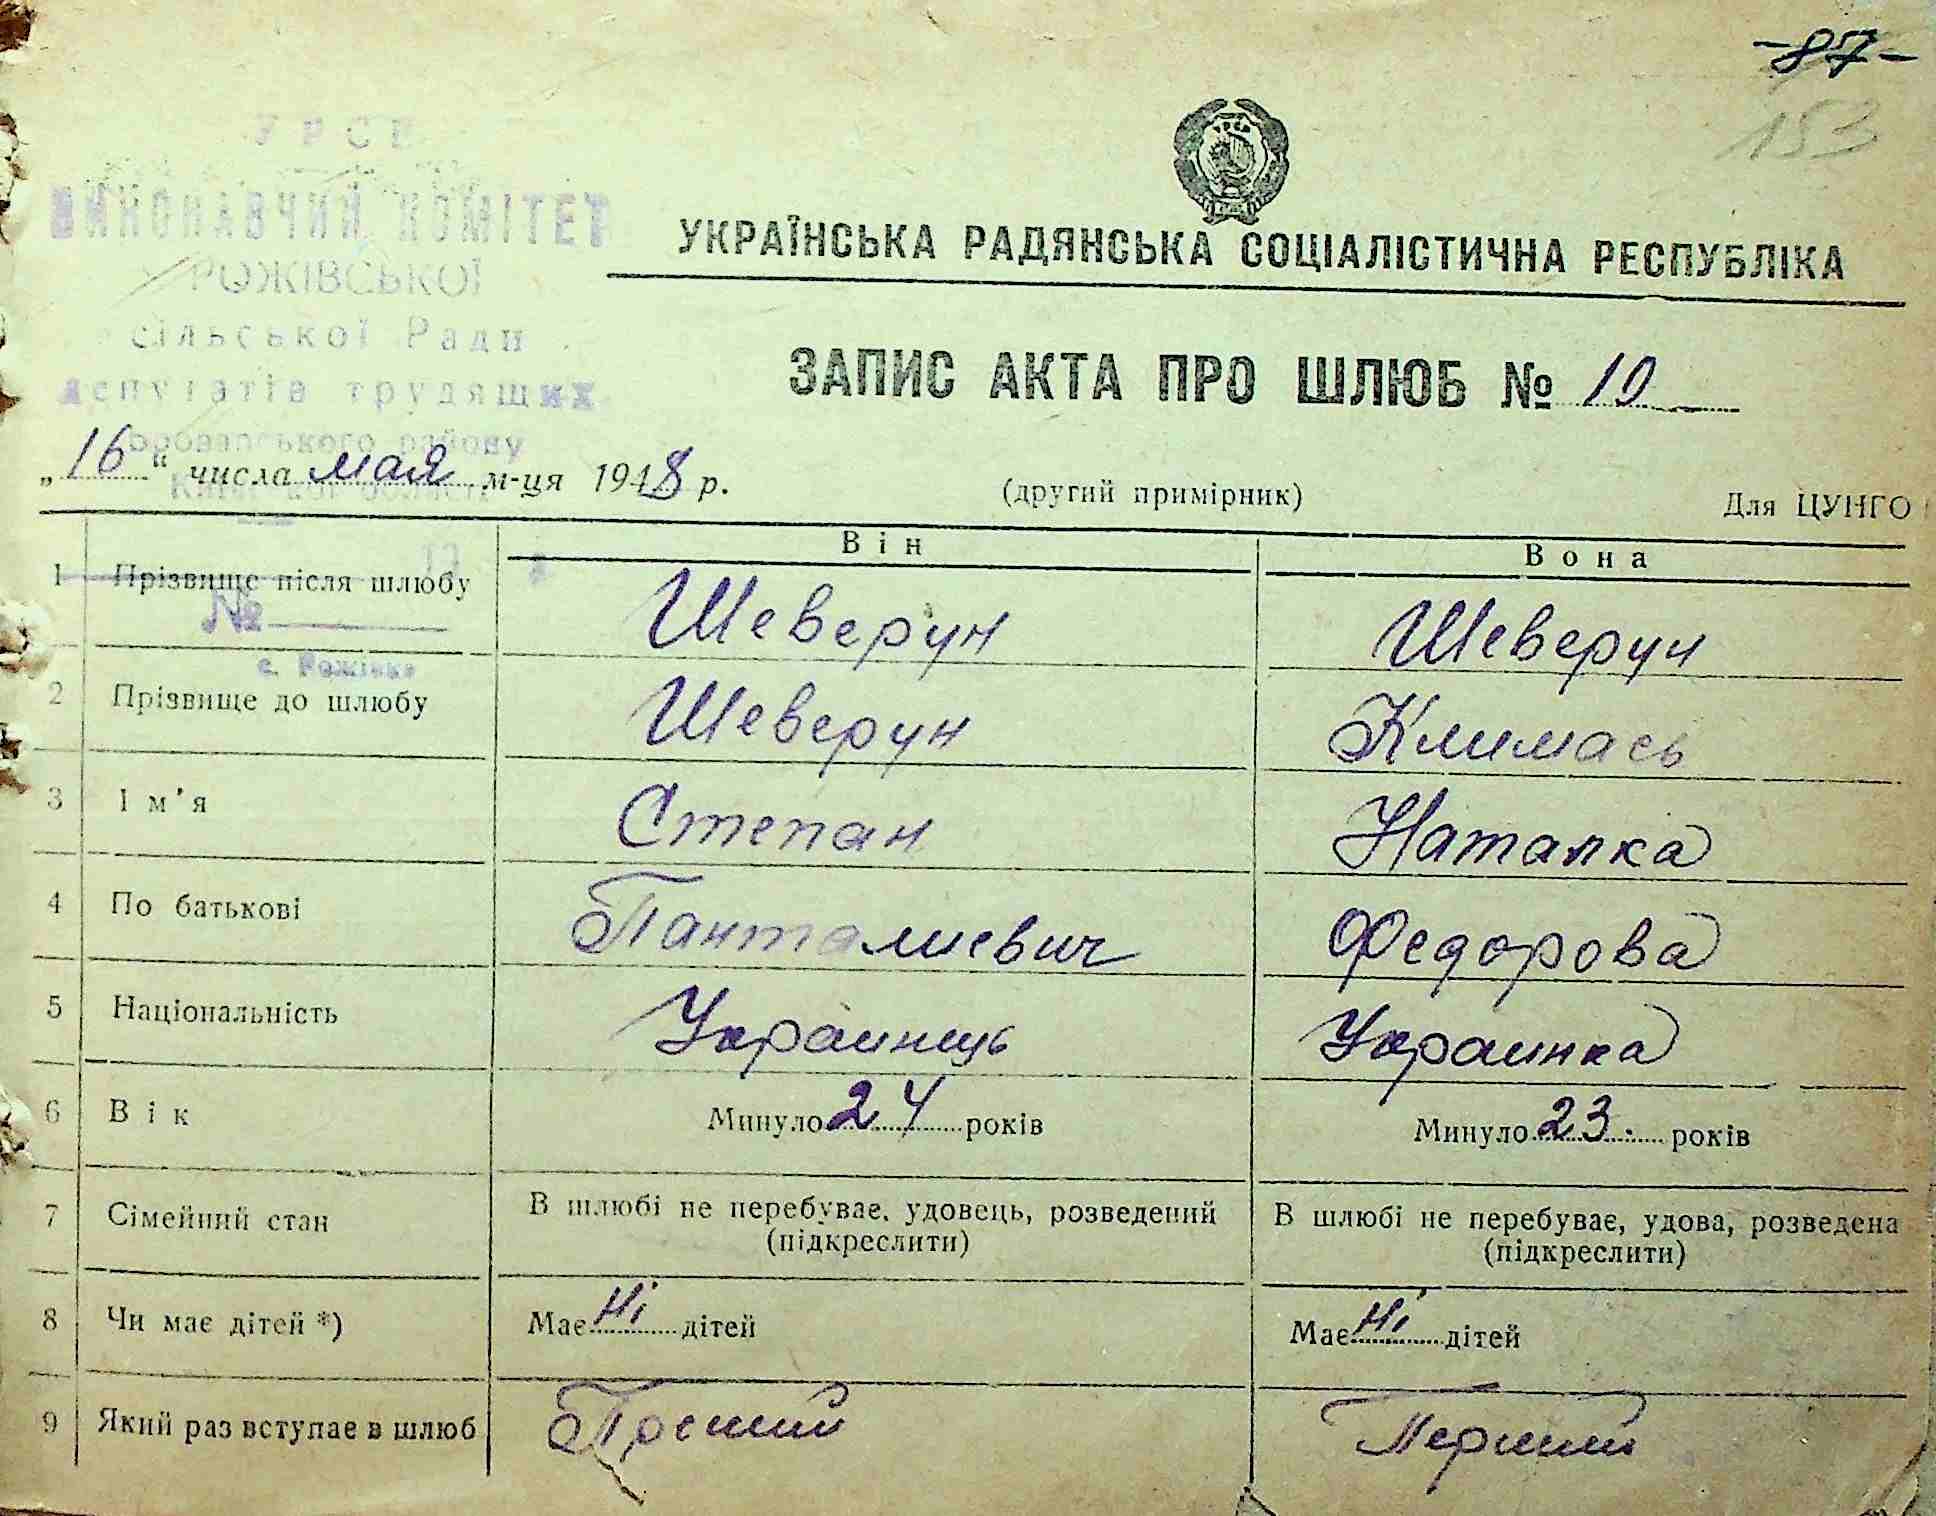 -87-
153
УРСР
ВИКОНАВЧИЙ КОМІТЕТ
РОЖІВСЬКОЇ
сільської Ради
депутатів трудящих
району
с. Рожівка
№
УКРАЇНСЬКА РАДЯНСЬКА СОЦІАЛІСТИЧНА РЕСПУБЛІКА
ЗАПИС АКТА ПРО ШЛЮБ № 10
„16“ числа мая м-ця 1948 р.
(другий примірник)
Для ЦУНГО
Він
Вона
1 Прізвище після шлюбу Шеверун Шеверун
2 Прізвище до шлюбу Шеверун Климась
3 Ім'я Степан Наталка
4 По батькові Панталиевич Федорова
5 Національність Украинець Украинка
6 Вік Минуло 24 років Минуло 23. років
7 Сімейний стан В шлюбі не перебуває, удовець, розведений В шлюбі не перебуває, удова, розведена
(підкреслити) (підкреслити)
8 Чи має дітей *) Має Ні дітей Має Ні дітей
9 Який раз вступає в шлюб Перший